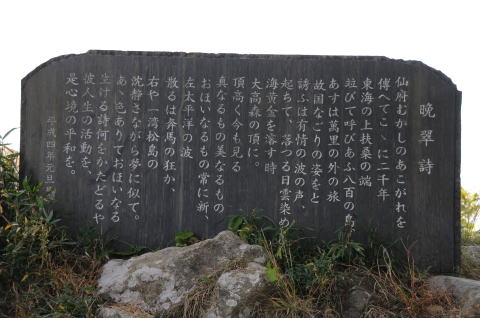 晩翠詩
仙府むかしのあこがれを
傳へてこゝに二千年
東海の上扶桑の端
竝びて呼びあふ八百の島
あすは萬里の外の旅
故国なごりの姿をと
誘ふは有情の波の声、
起ちて、落つる日雲染め
海黄金を溶す時
大高森の頂に。
頂高く今も見る
真なるもの美なるもの
おほいなるもの常に新、
左太平洋の波
散るは奔馬の狂か、
右や一湾松島の
沈静さながら夢に似て。
あゝ色ありておほいなる
生ける詩何をかたどるや
彼人生の活動を、
是心境の平和を。
平成四年元旦